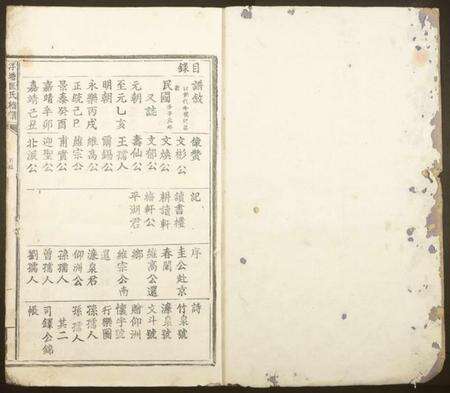 目錄
譜敘
民國
又誌
元朝
至元乙亥
明朝
永樂丙戌
正統己巳
景泰癸酉
嘉靖辛卯
嘉靖己丑
像贊
文彬公
文煥公
文郁公
壽仙公
王孺人
爾錫公
維高公
維宗公
南實公
迎聖公
北派公
記
讀書樓
耕讀軒
梅軒公
平湖君
序
圭公赴京
春闈
維高公還
鄉
維宗公南
還
濂泉君
仰洲公
孫孺人
曾孺人
劉孺人
詩
竹泉號
濂泉號
文斗號
贈仰洲
懷宇號
行樂圖
孫孺人
孫孺人
其二
司鐸公錦
帳